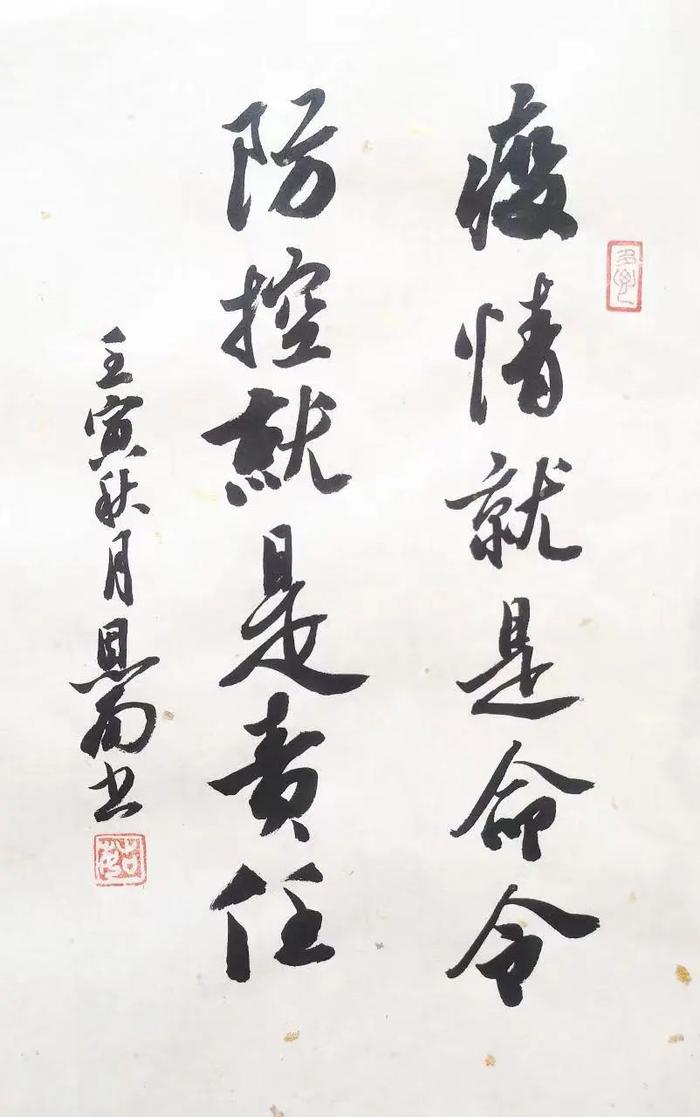 疫情就是命令
防控就是责任
壬寅秋月恩南书